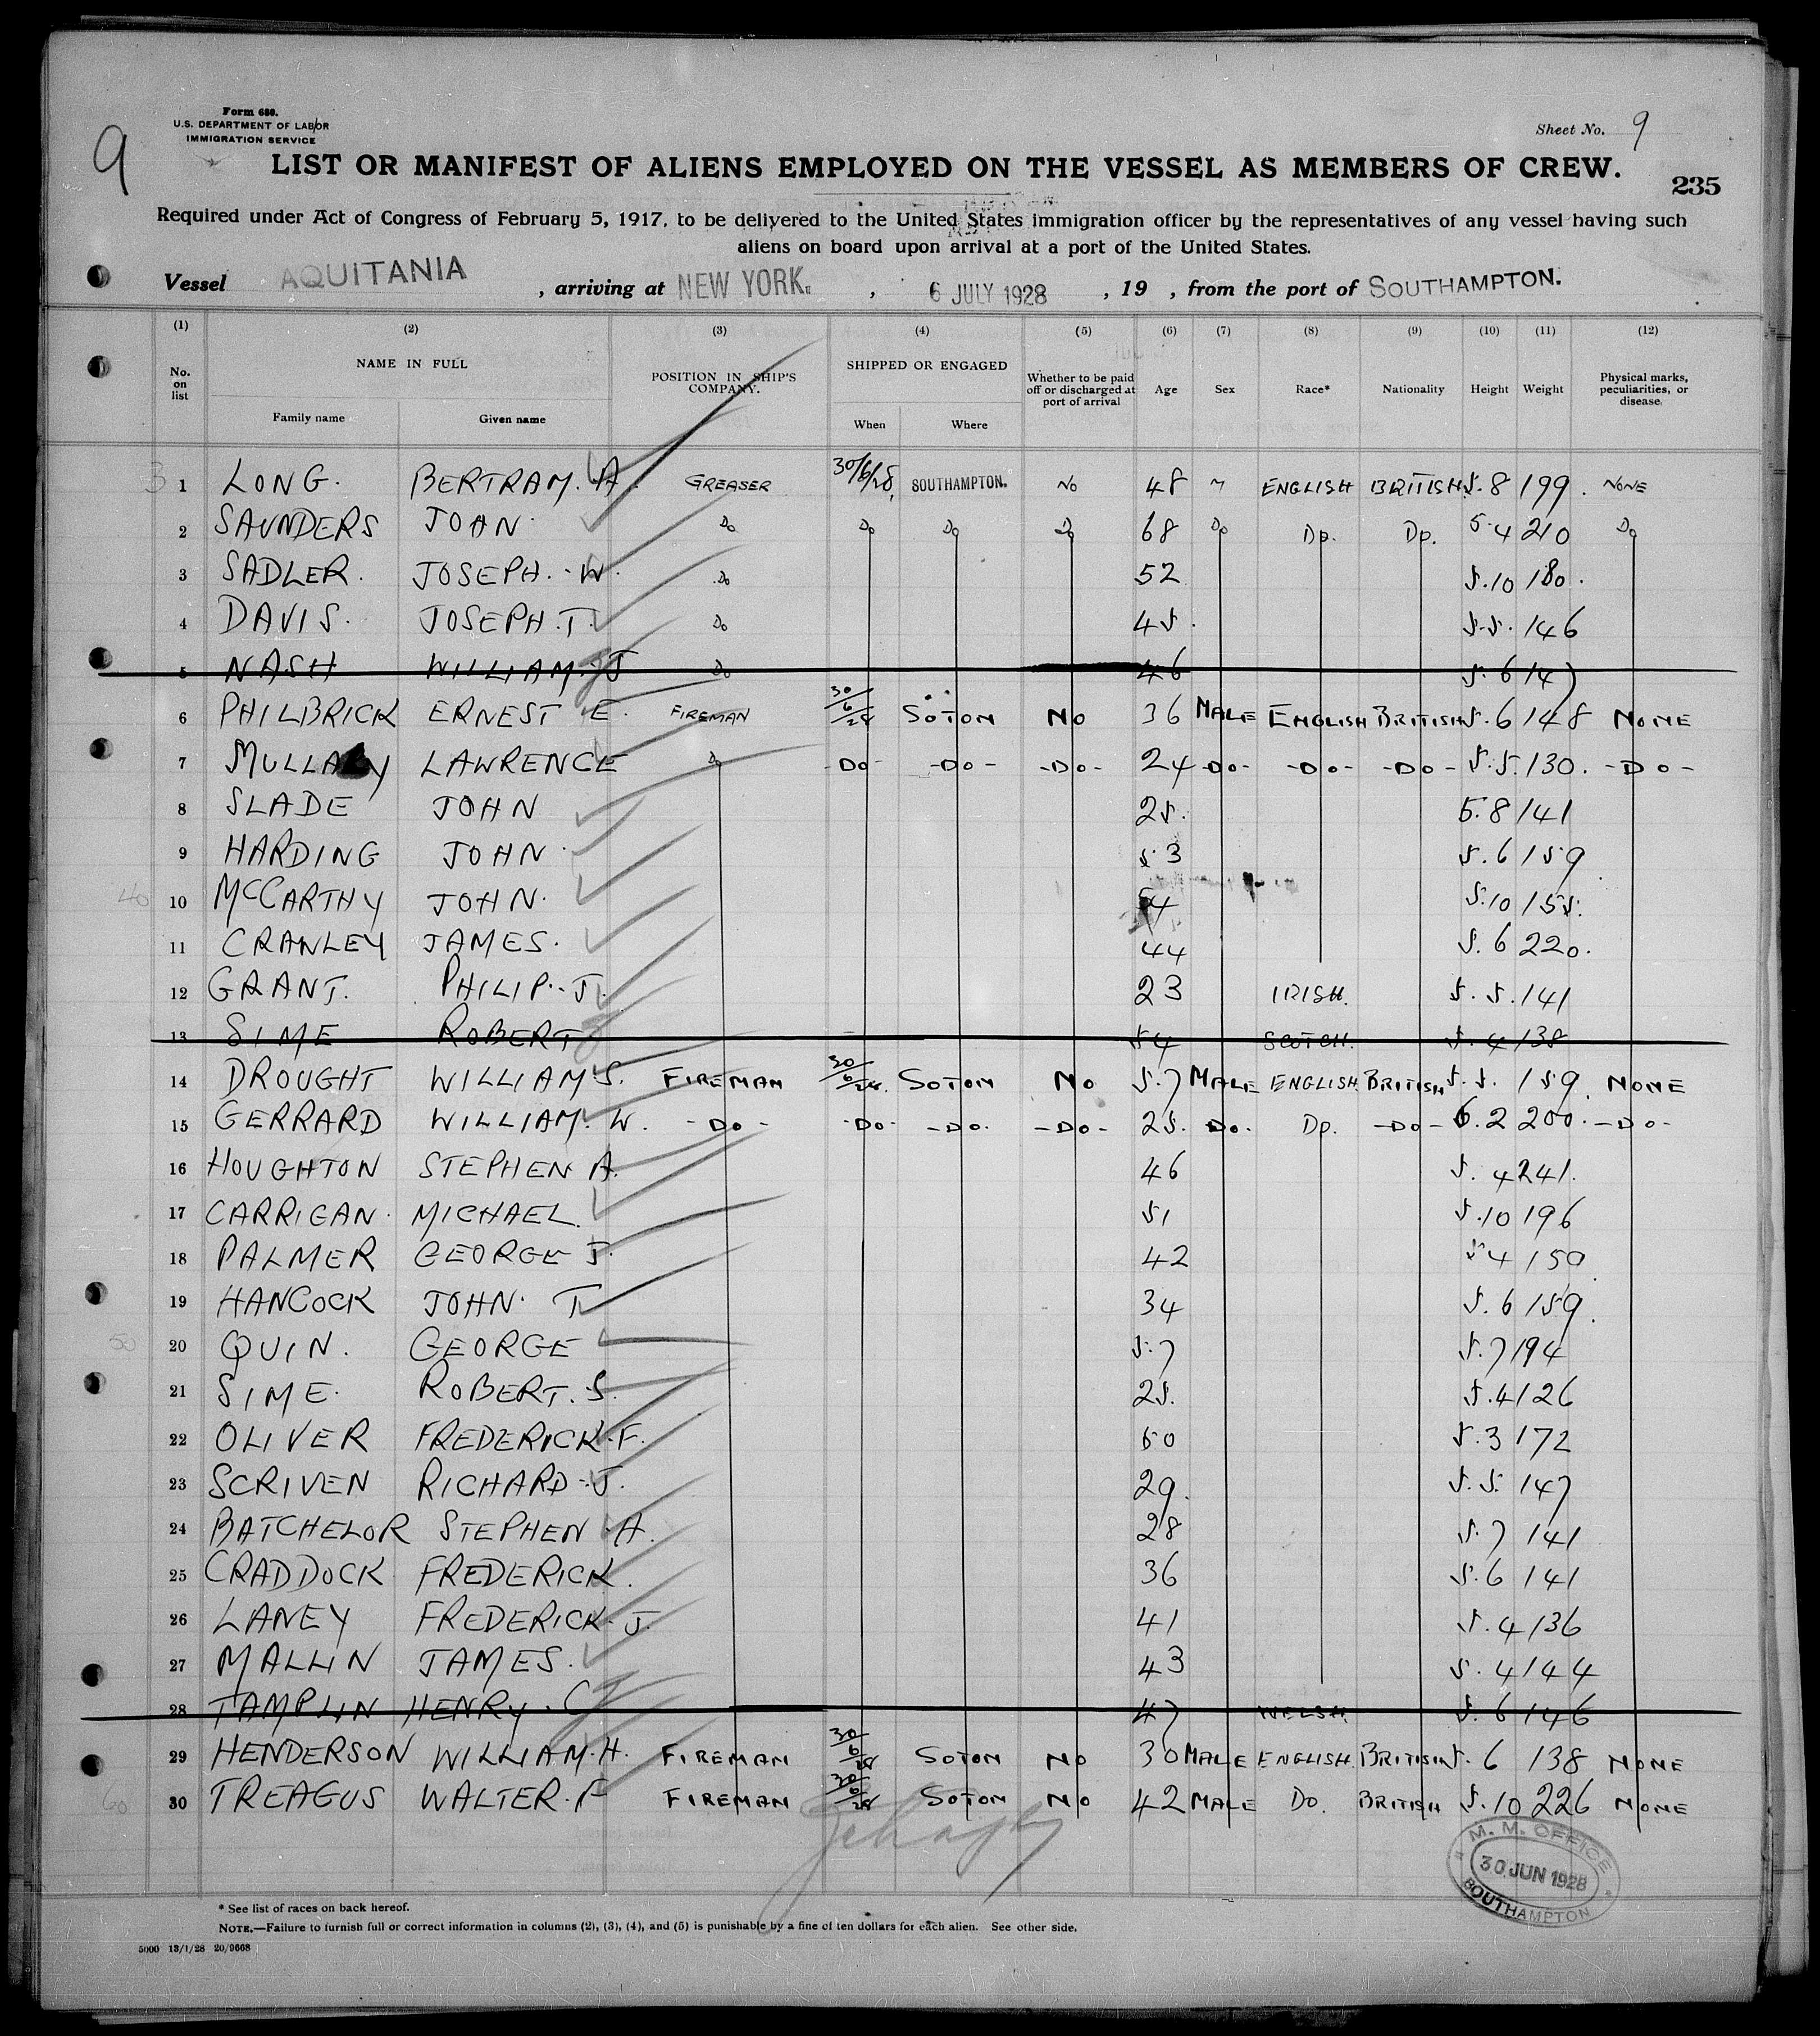 Form 680.
U.S. DEPARTMENT OF LABOR
IMMIGRATION SERVICE
9
Sheet No. 9
LIST OR MANIFEST OF ALIENS EMPLOYED ON THE VESSEL AS MEMBERS OF CREW.
235
Required under Act of Congress of February 5, 1917, to be delivered to the United States immigration officer by the representatives of any vessel having such
aliens on board upon arrival at a port of the United States.
Vessel AQUITANIA , arriving at NEW YORK. , 6 JULY 1928 , 19 , from the port of SOUTHAMPTON.
(1) (2) (3) (4) (5) (6) (7) (8) (9) (10) (11) (12)
No. on list NAME IN FULL POSITION IN SHIP'S COMPANY. SHIPPED OR ENGAGED Whether to be paid off or discharged at port of arrival Age Sex Race* Nationality Height Weight Physical marks, peculiarities, or disease.
Family name Given name When Where
3 1 LONG. BERTRAM. A. GREASER 30/6/28, SOUTHAMPTON. NO 48 M ENGLISH BRITISH. 5.8 199. NONE
2 SAUNDERS JOHN. Do Do Do Do 68 Do Do. Do. 5.4 210 Do
3 SADLER. JOSEPH. W. Do 52 5.10 180.
4 DAVIS. JOSEPH. T. Do 45. 5.5. 146
5 NASH WILLIAM J Do 46 5.6 147
6 PHILBRICK ERNEST E. FIREMAN 30/6/28 SOTON NO 36 MALE ENGLISH BRITISH 5.6 148 NONE
7 MULLALY LAWRENCE Do -Do- -Do- -Do- 24 -Do- -Do- -Do- 5.5. 130. -Do-
8 SLADE JOHN 25. 5.8 141
9 HARDING JOHN. 53 5.6 159
40 10 McCARTHY JOHN. 54 5.10 155.
11 CRANLEY JAMES. 44 5.6 220.
12 GRANT. PHILIP. J. 23 IRISH. 5.5. 141
13 SIME ROBERT 54 SCOTCH. 5.4 138
14 DROUGHT WILLIAM S. FIREMAN 30/6/28. SOTON NO 57 MALE ENGLISH. BRITISH 5.5. 159. NONE
15 GERRARD WILLIAM. W. -Do- -Do- -Do- -Do- 25. Do. Do. -Do- 6.2 200. -Do-
16 HOUGHTON STEPHEN A. 46 5.4 241.
17 CARRIGAN. MICHAEL. 51 5.10 196
18 PALMER GEORGE J. 42 5.4 150
19 HANCOCK JOHN. T 34 5.6 159.
50 20 QUIN. GEORGE 57 5.7 194
21 SIME. ROBERT. S. 25. 5.4 126
22 OLIVER FREDERICK. F. 50 5.3 172
23 SCRIVEN RICHARD. J. 29. 5.5. 147
24 BATCHELOR STEPHEN H. 28 5.7 141
25 CRADDOCK FREDERICK. 36 5.6 141
26 LANEY FREDERICK. J. 41 5.4 136
27 MALLIN JAMES. 43 5.4 144
28 TAMPLIN HENRY. C 47 WELSH. 5.6 146
29 HENDERSON WILLIAM. H. FIREMAN 30/6/28 SOTON NO 30 MALE ENGLISH. BRITISH 5.6 138 NONE
60 30 TREAGUS WALTER. F FIREMAN 30/6/28 SOTON NO 42 MALE DO. BRITISH 5.10 226 NONE
M. M. OFFICE
30 JUN 1928
SOUTHAMPTON
* See list of races on back hereof.
NOTE.—Failure to furnish full or correct information in columns (2), (3), (4), and (5) is punishable by a fine of ten dollars for each alien. See other side.
5000 13/1/28 20/9668